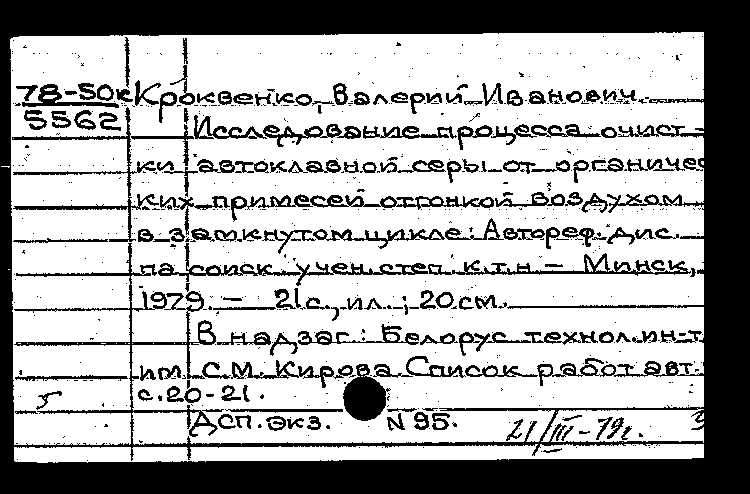 78-50к Кроквенко, Валерий Иванович.
5562
Исследование процесса очист-
ки автоклавной серы от органичес
ких примесей отгонкой воздухом
в замкнутом цикле: Автореф. дис.
на соиск. учен. степ. к.т.н. – Минск,
1979. – 21с., ил.; 20см.
В надзаг.: Белорус. технол. ин-т
им. С.М. Кирова. Список работ авт.:
с.20-21.
ДСП. экз. N 95.
21/III-79г.